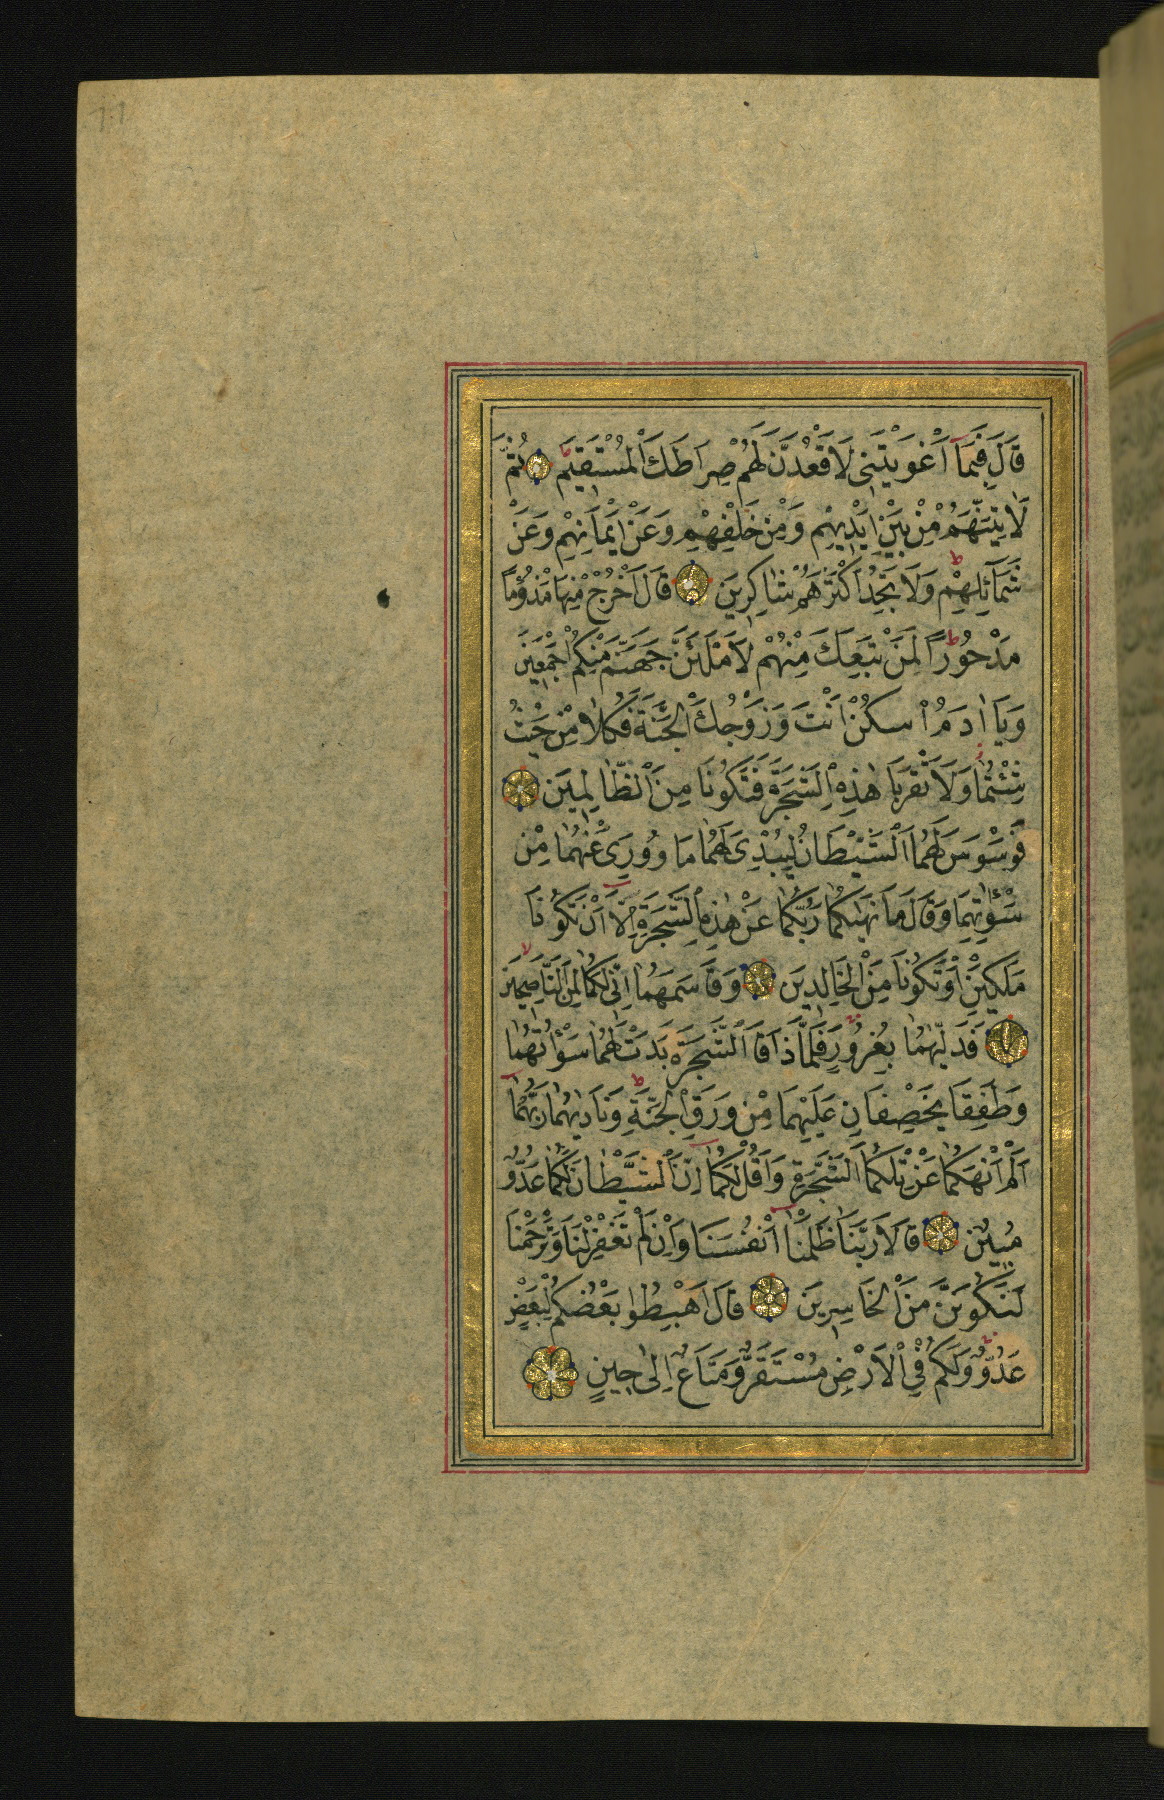 قَالَ فَبِمَٓا اَغْوَيْتَنِى لَاَقْعُدَنَّ لَهُمْ صِرَاطَكَ الْمُسْتَقِيمَ ثُمَّ
لَاٰتِيَنَّهُمْ مِنْ بَيْنِ اَيْدِيهِمْ وَمِنْ خَلْفِهِمْ وَعَنْ اَيْمَانِهِمْ وَعَنْ
شَمَٓائِلِهِمْ وَلَا تَجِدُ اَكْثَرَهُمْ شَاكِرِينَ قَالَ اخْرُجْ مِنْهَا مَذْؤُمًا
مَدْحُورًا لَمَنْ تَبِعَكَ مِنْهُمْ لَاَمْلَئَنَّ جَهَنَّمَ مِنْكُمْ اَجْمَعِينَ
وَيَا اٰدَمُ اسْكُنْ اَنْتَ وَزَوْجُكَ الْجَنَّةَ فَكُلَا مِنْ حَيْثُ
شِئْتُمَا وَلَا تَقْرَبَا هٰذِهِ الشَّجَرَةَ فَتَكُونَا مِنَ الظَّالِمِينَ
فَوَسْوَسَ لَهُمَا الشَّيْطَانُ لِيُبْدِىَ لَهُمَا مَا وُورِىَ عَنْهُمَا مِنْ
سَوْاٰتِهِمَا وَقَالَ مَا نَهٰيكُمَا رَبُّكُمَا عَنْ هٰذِهِ الشَّجَرَةِ اِلَّٓا اَنْ تَكُونَا
مَلَكَيْنِ اَوْ تَكُونَا مِنَ الْخَالِدِينَ وَقَاسَمَهُمَا اِنِّى لَكُمَا لَمِنَ النَّاصِحِينَ
فَدَلّٰيهُمَا بِغُرُورٍ فَلَمَّا ذَاقَا الشَّجَرَةَ بَدَتْ لَهُمَا سَوْاٰتُهُمَا
وَطَفِقَا يَخْصِفَانِ عَلَيْهِمَا مِنْ وَرَقِ الْجَنَّةِ وَنَادٰيهُمَا رَبُّهُمَا
اَلَمْ اَنْهَكُمَا عَنْ تِلْكُمَا الشَّجَرَةِ وَاَقُلْ لَكُمَا اِنَّ الشَّيْطَانَ لَكُمَا عَدُوٌّ
مُبِينٌ قَالَا رَبَّنَا ظَلَمْنَا اَنْفُسَنَا وَاِنْ لَمْ تَغْفِرْ لَنَا وَتَرْحَمْنَا
لَنَكُونَنَّ مِنَ الْخَاسِرِينَ قَالَ اهْبِطُوا بَعْضُكُمْ لِبَعْضٍ
عَدُوٌّ وَلَكُمْ فِى الْاَرْضِ مُسْتَقَرٌّ وَمَتَاعٌ اِلٰى حِينٍ